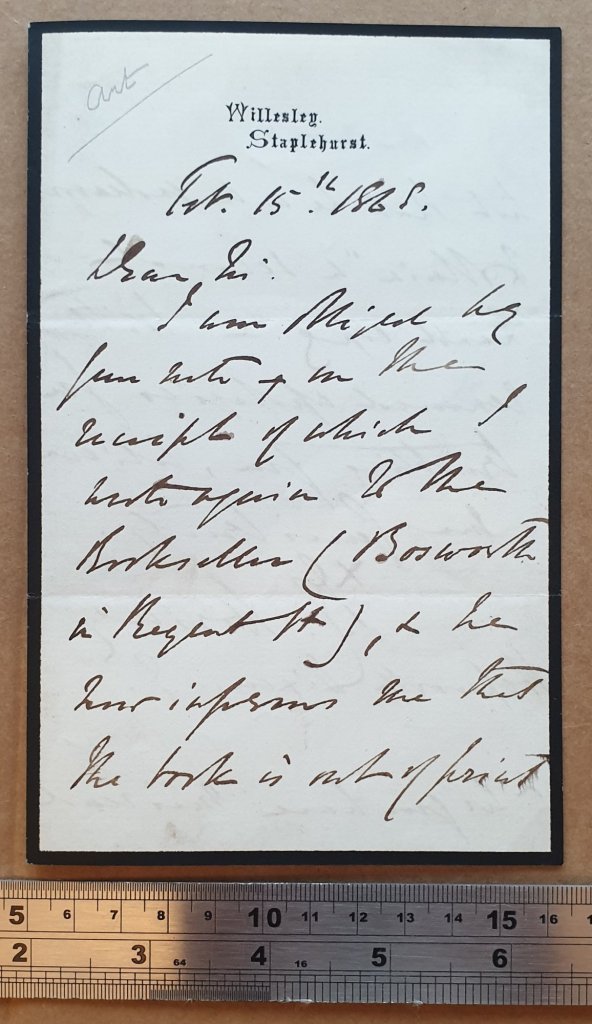 art
Willesley.
Staplehurst.
Feb. 15th. 1868.
Dear Sir.
I am obliged by
your note & on the
receipt of which I
wrote again to the
Bookseller (Bosworth
in Regent St), & he
now informs me that
the book is out of print
5 6 7 8 9 10 11 12 13 14 15 16
2 3 64 4 16 5 6